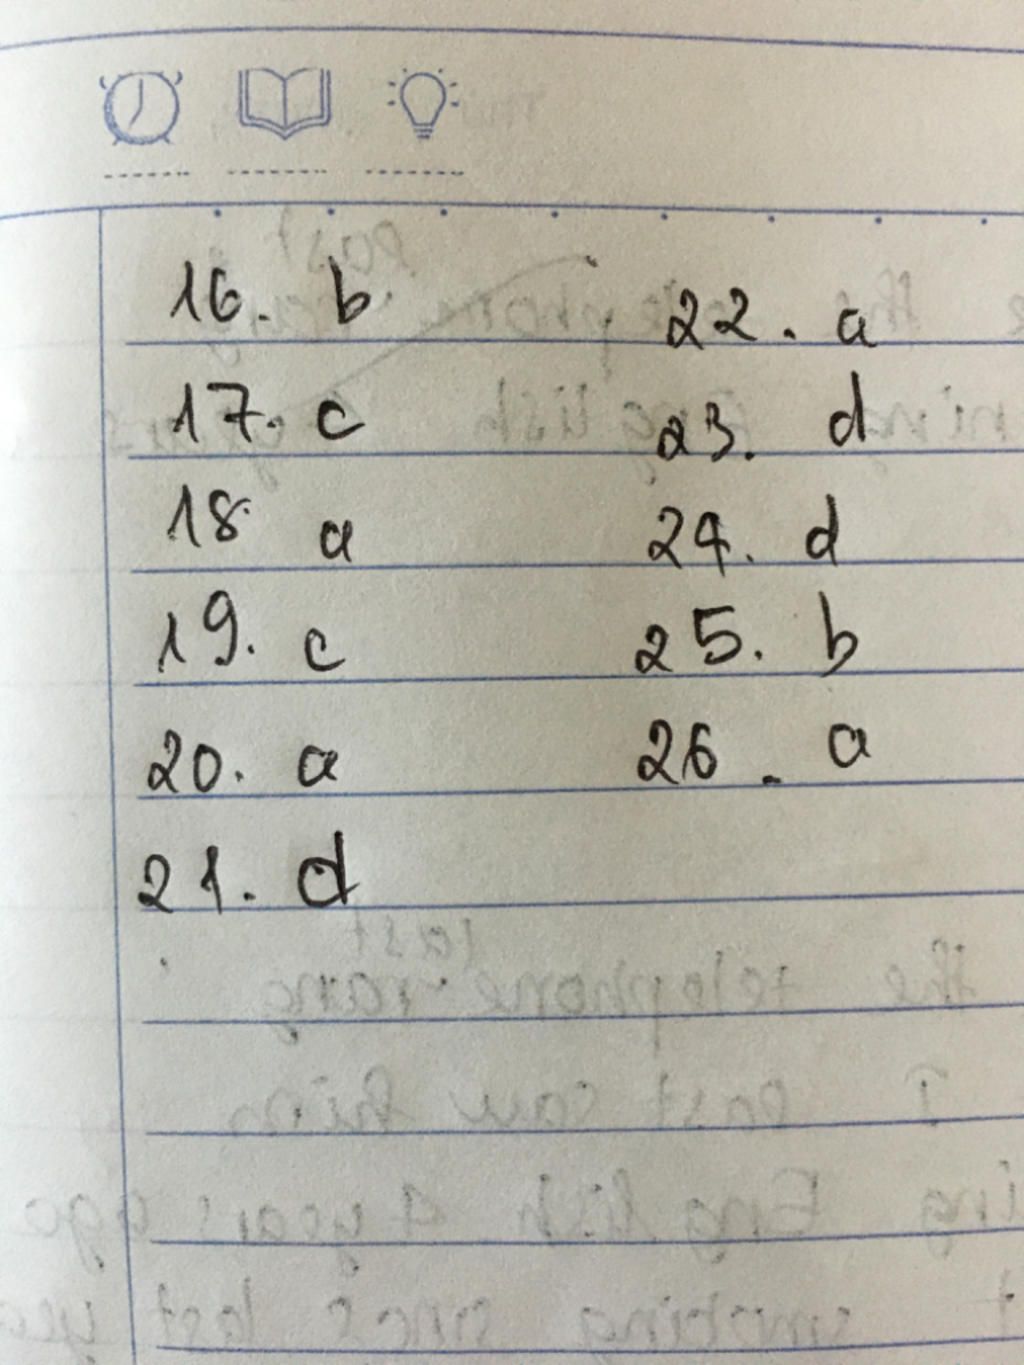 16. b
17. c
18 a
19. c
20. a
21. d
22. a
23. d
24. d
25. b
26. a